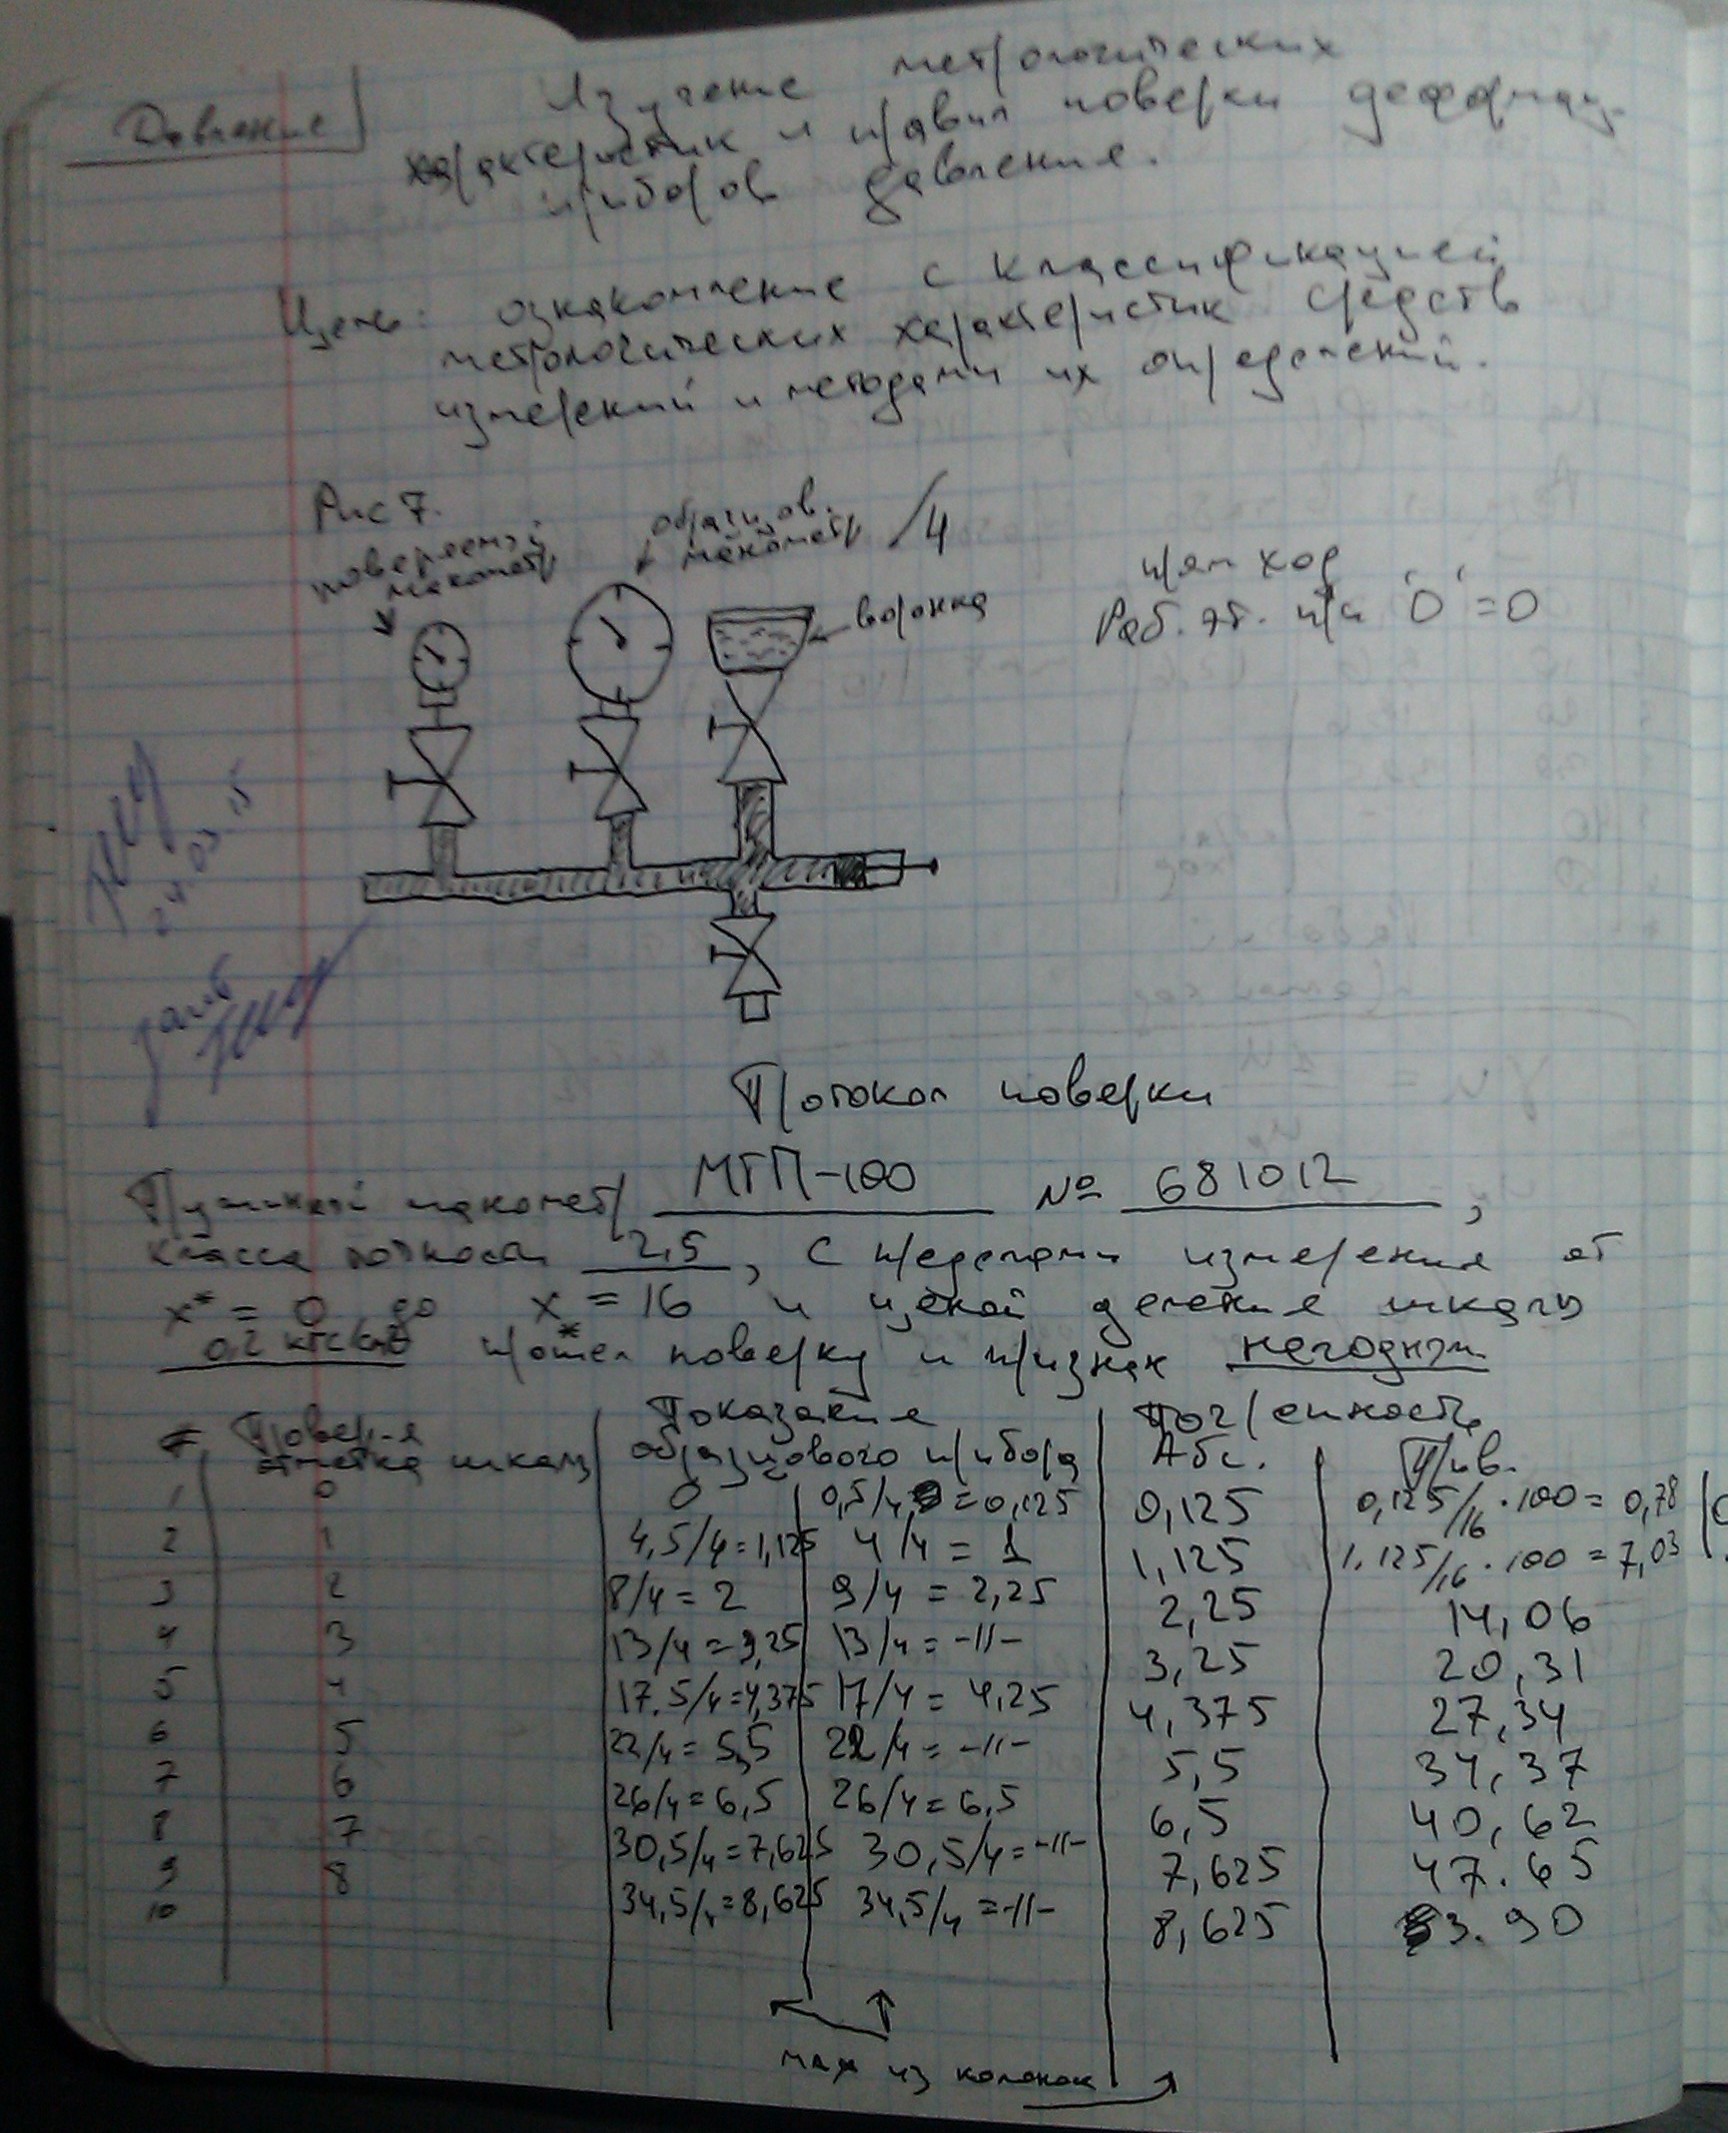 Давление
Изучение метрологических
характеристик и правил поверки деформац.
приборов давления.
Цель: ознакомление с классификацией
метрологических характеристик средств
измерений и методами их определений.
Рис 7.
поверяемый манометр
образцов. манометр /4
воронка
прям ход
Раб. эт. при '0' = 0
24.03.15
Протокол поверки
Пружинный манометр МТП-100 № 681012,
класса точности 2,5, с пределами измерения от
x* = 0 до x* = 16 и ценой деления шкалы
0,2 кгс/см² прошел поверку и признан негодным
# Поверяемая отметка шкалы Показания образцового прибора Погрешность Абс. Прив.
1 0 0 0,5/4 = 0,125 0,125 0,125/16 · 100 = 0,78
2 1 4,5/4 = 1,125 4/4 = 1 1,125 1.125/16 · 100 = 7,03
3 2 8/4 = 2 9/4 = 2,25 2,25 14,06
4 3 13/4 = 3,25 13/4 = -//- 3,25 20,31
5 4 17.5/4 = 4,375 17/4 = 4,25 4,375 27,34
6 5 22/4 = 5,5 22/4 = -//- 5,5 34,37
7 6 26/4 = 6,5 26/4 = 6,5 6,5 40,62
8 7 30,5/4 = 7,625 30,5/4 = -//- 7,625 47.65
9 8 34,5/4 = 8,625 34,5/4 = -//- 8,625 53.90
10
max из колонок